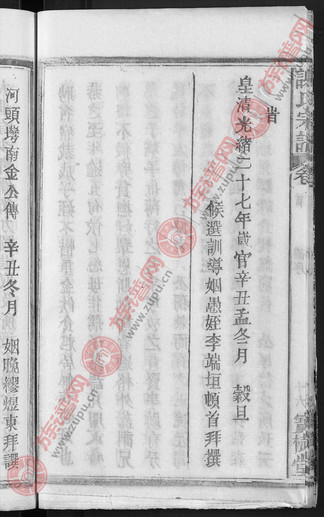 時
皇淸光緖二十七年歲官辛丑孟冬月　穀旦
候選訓導姻愚姪李端垣頓首拜撰
河頭塝南金公傳　辛丑冬月　姻晚繆煙東拜譔
氏宗譜
卷
首
寶樹堂
族譜网
www.zupu.cn